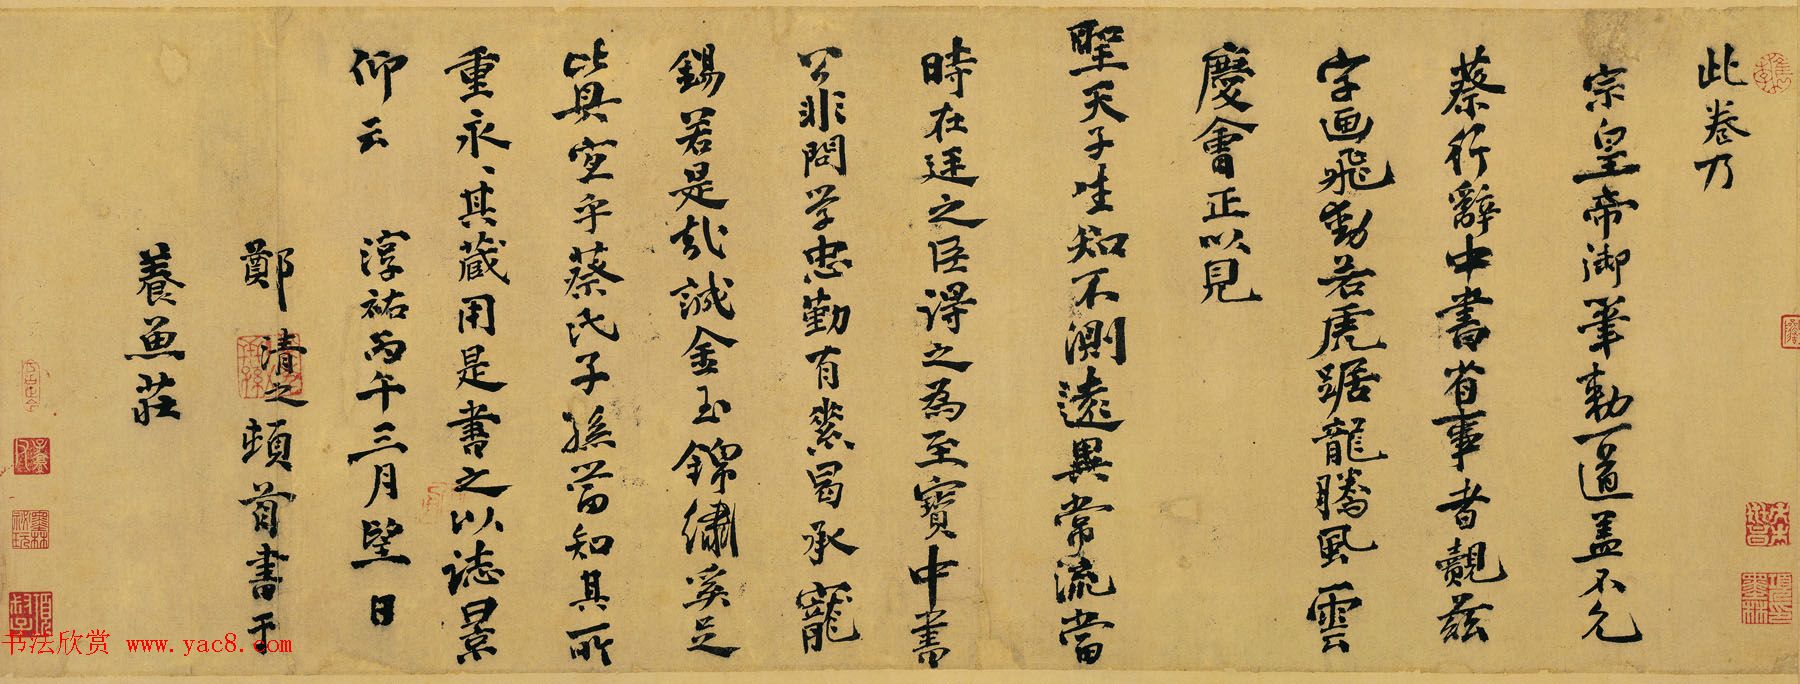 此卷乃
宗皇帝御筆勅一道盖不允
蔡行辭中書省事者觀茲
字画飛動若虎踞龍騰風雲
慶會正以見
聖天子生知不測遠異常流當
時在廷之臣得之為至寶中書
公非問学忠勤有素曷承寵
錫若是哉誠金玉錦繡奚足
比其宝乎蔡氏子孫當知其所
重永、其蔵用是書之以誌景
仰云 淳祐丙午三月望日
鄭清之頓首書于
養魚莊
书法欣赏 www.yac8.com